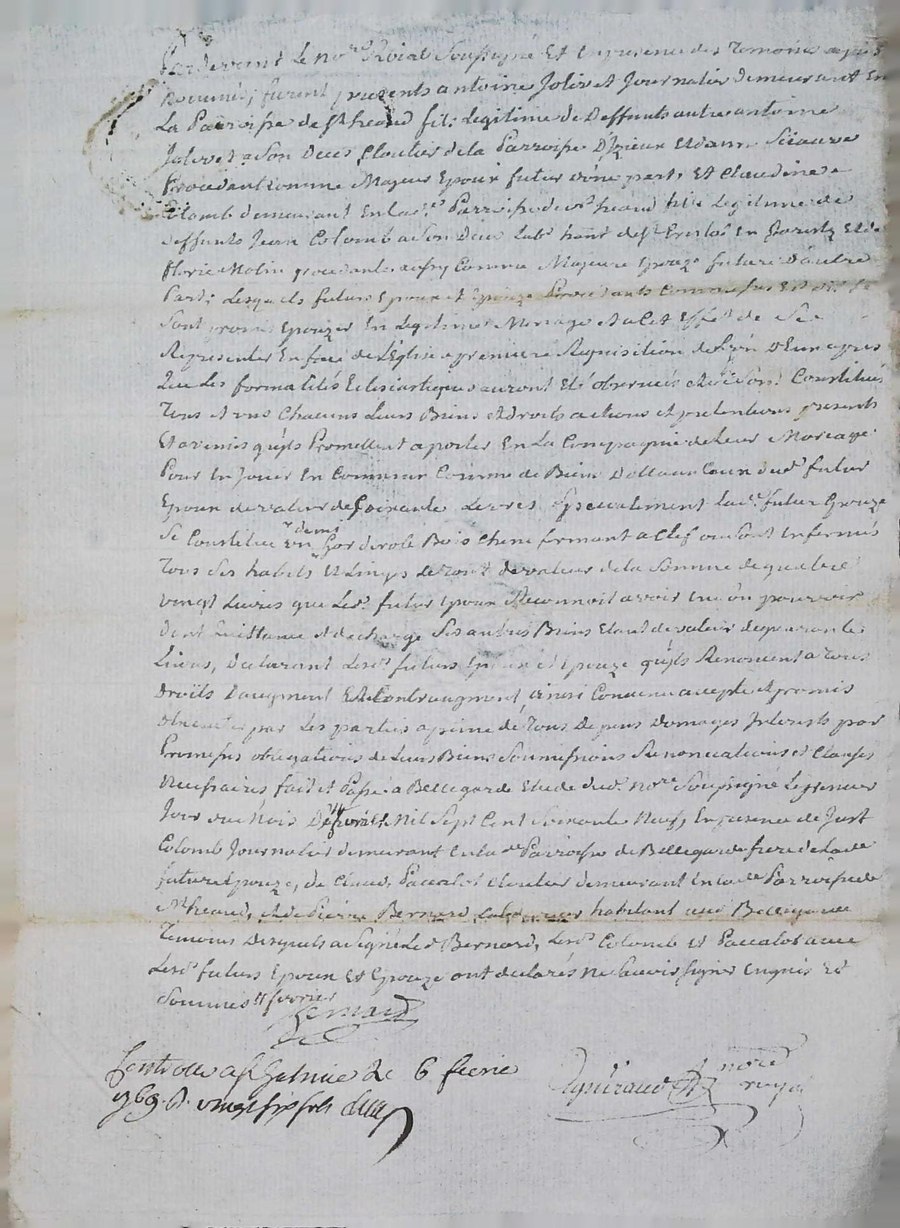 Pardevant le nore Roial Soussigné Et En presence des Temoins apres
Nommés, furent presents antoine Jolivet Journalier demeurant En
La Parroisse de st heand fils Legitime de Deffunts autre antoine
Jolivet a son deces Cloutier de la Parroisse D'Izieux Et d'anne
Procedant comme Majeur Epoux futur d'une part, Et Claudine
Colomb demeurant En lade Parroisse de st heand fille Legitime de
deffunts Jean Colomb a son deces Labr habnt de st En forestz Et de
florie Molin procedante aussy Comme Majeure Epouze future D'autre
Part; Lesquels futurs Epoux et Epouze Procedants Comme sus Est dit se
Sont promis Epouzer En Legitime Mariage Et a Cet Effet de Se
Representer En face de L'Eglise a premiere Requisition de L'un D'Eux apres
que Les formalités Eclesiastiques auront Eté observées Et se Sont Constitués
Tous et uns Chacuns Leurs Biens et droits actions et pretentions presents
Et avenir qu'ils Promettent aporter En La Compagnie de Leur Mariage
Pour En Jouir En Commun Comme de Biens Dottaux Ceux dudt futur
Epoux de valeur de soixante Livres specialement Lade future Epouze
Se Constitue un demi Garderobe Bois Chene fermant a Clef ou sont Enfermés
Tous Ses habits Et Linges Le Tout de valeur de la Somme de quatre
vingt Livres que Ledt futur Epoux Reconnoit avoir En son pouvoir
dont quittance et decharge Ses autres Biens Etant de valeur de quarante
Livres, Declarant Lesdts futurs Epoux et Epouze qu'ils Renoncent a Tous
Droits D'augment Et de Contreaugment, ainsi Convenu accepté et promis
observer par Les parties a peine de Tous Depens Domages Interests par
Promesses obligations de Leurs Biens Soumissions Renonciations et Clauses
Necessaires fait et Passé a Bellegarde Etude dudt nore Soussigné Le premier
Jour du Mois De fevrier Mil Sept Cent Soixante Neuf, En presence de Just
Colomb Journalier demeurant En lade Parroisse de Bellegarde frere de lade
future Epouze, de Claude Paccalot Cloutier demeurant En lade Parroisse de
St heand, Et de Pierre Bernard Laboureur habitant aud Bellegarde
Temoins Desquels a Signé Ledt Bernard, Lesdts Colomb Et Paccalot avec
Lesdts futurs Epoux Et Epouze ont declarés Ne Savoir signer Enquis Et
Sommés fevrier
Bernard
Controlé a st Galmier le 6 fevrier
1769 R. vingt six sols
nore royal